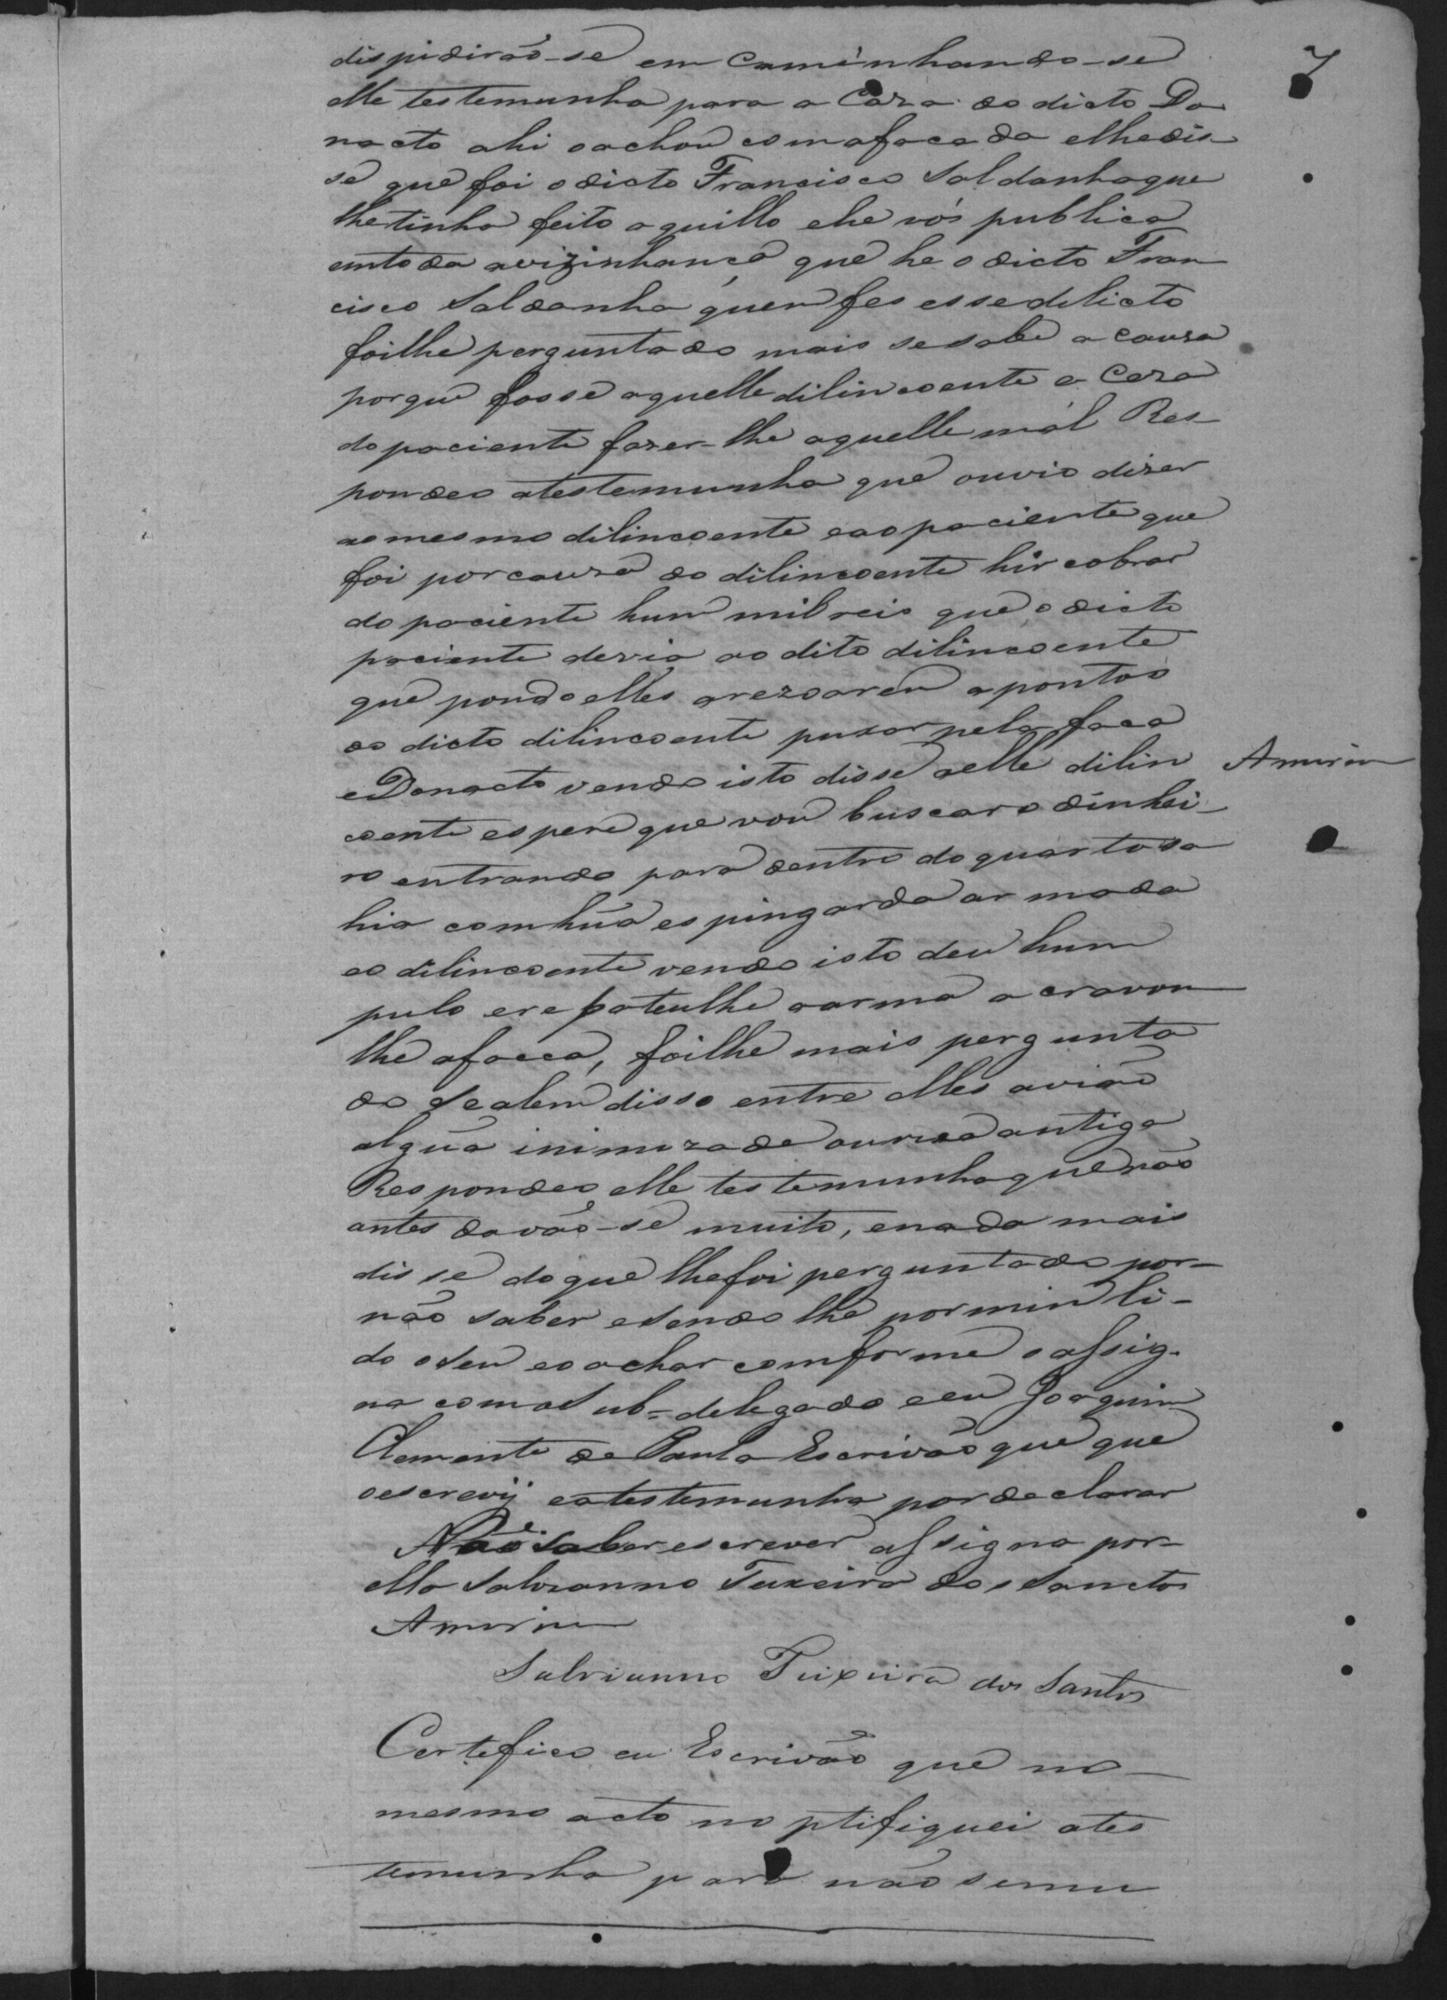 7
dispidirão-se em caminhando-se
elle testemunha para a Caza do dicto Do
nacto ahi oachou com afacada elhedis-
se que foi odicto Francisco Saldanhaque
lhetinha feito aquillo ehe vós publica
emtoda avizinhança que he odicto Fran
cisco Saldanha quem fes essedelicto
foilhe perguntado mais sesabe a cauza
porque fosse aquelle dilincoente a Caza
dopaciente fazer-lhe aquelle mál Res-
pondeo atestemunha que ouvio dizer
aomesmo dilincoente eaopaciente que
foi porcauza do dilincoente hir cobrar
do paciente hum mil reis que o dicto
paciente devia ao dito dilincoente
que pondo elles arezoarem apontoó
do dicto dilincoente puxar pela faca
eDonacto vendo isto disse aelle dilin
Amorim
coente espere que vou buscar o dinhei-
ro entrando para dentro doquarto sa
hio com hũa espingarda armada
eo dilincoente vendo isto deu hum
pulo e rebateulhe aarma acravou
lhe afacca, foilhe mais pergunta
do sealem disso entre elles avião
algũa inimizade ourixa antiga
Respondeo elle testemunhaque não
antes davão-se muito, enada mais
disse doque lhefoi perguntado por-
não saber esendo lhe pormim li-
do oseu eoachar comforme o assig-
na como Sub=delegado eeu Joaquim
Clemente de Paula Escrivão que que
oescrevij eatestemunha pordeclarar
Não saber escrever assigna por-
ella Salvianno Teixeira dos Sanctos
Amorim
Salvianno Teixeira dos Santos
Certefico eu Escrivão que no-
mesmo acto no ptifiquei ates
temunha para não semu